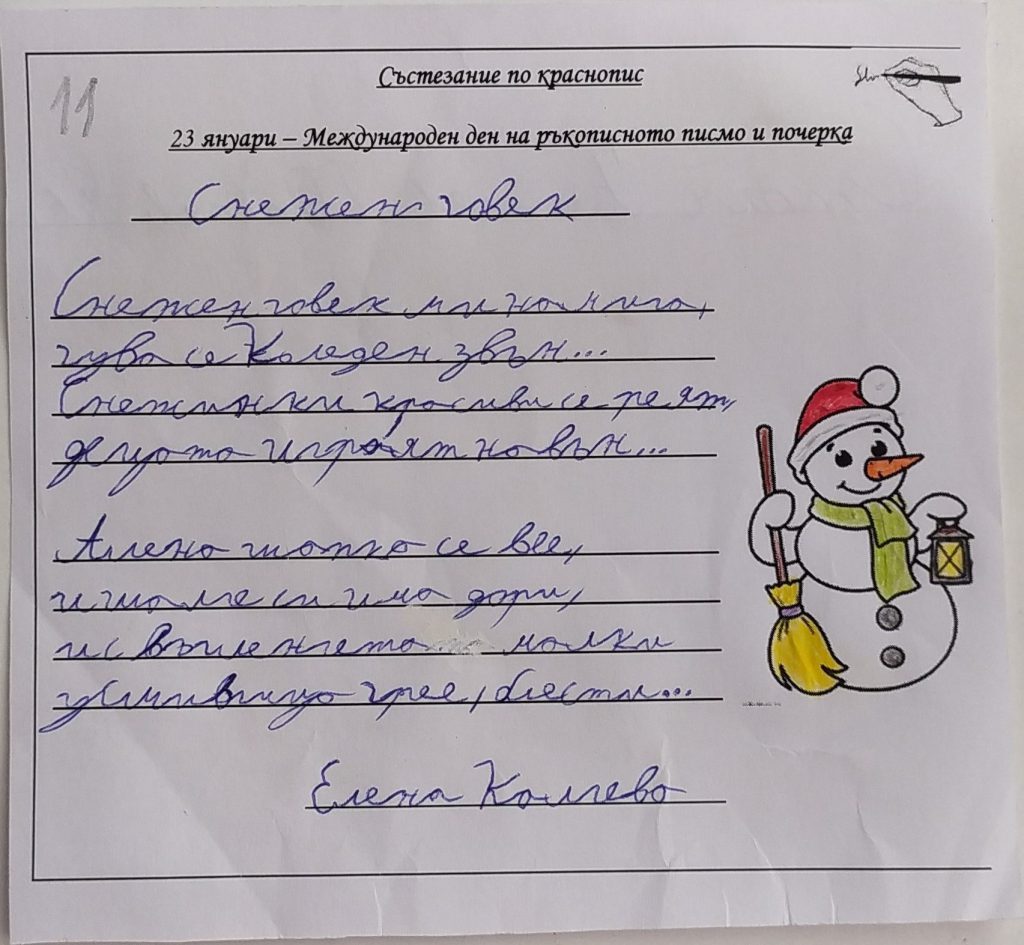 11
Състезание по краснопис
23 януари – Международен ден на ръкописното писмо и почерка
Снежен човек
Снежен човек ми намига,
чува се Коледен звън...
Снежинки красиви се реят,
децата играят навън...
Алена шапка се вее,
и шалче си има дори,
и с въгленчета малки
усмивчица грее, блести...
Елена Колчева